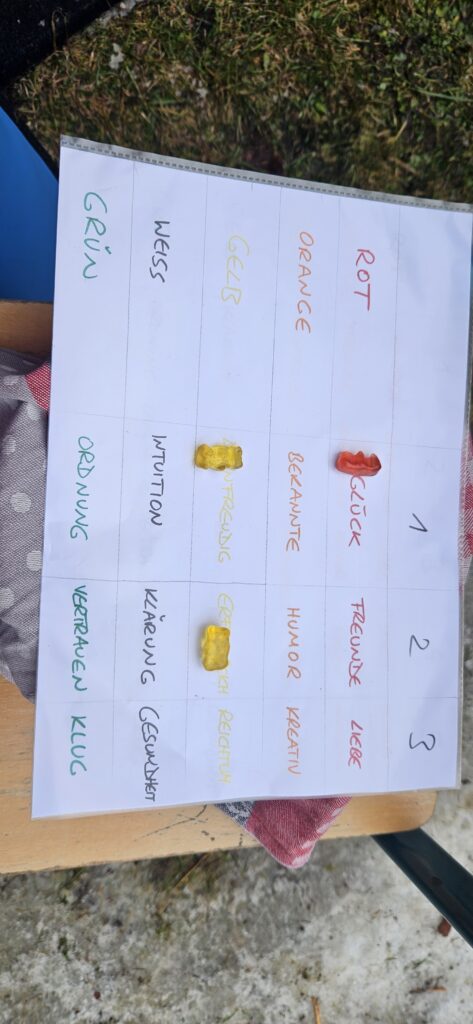 1 2 3
ROT GLÜCK FREUNDE LIEBE
ORANGE BEKANNTE HUMOR KREATIV
GELB REICHTUM
WEISS INTUITION KLÄRUNG GESUNDHEIT
GRÜN ORDNUNG VERTRAUEN KLUG